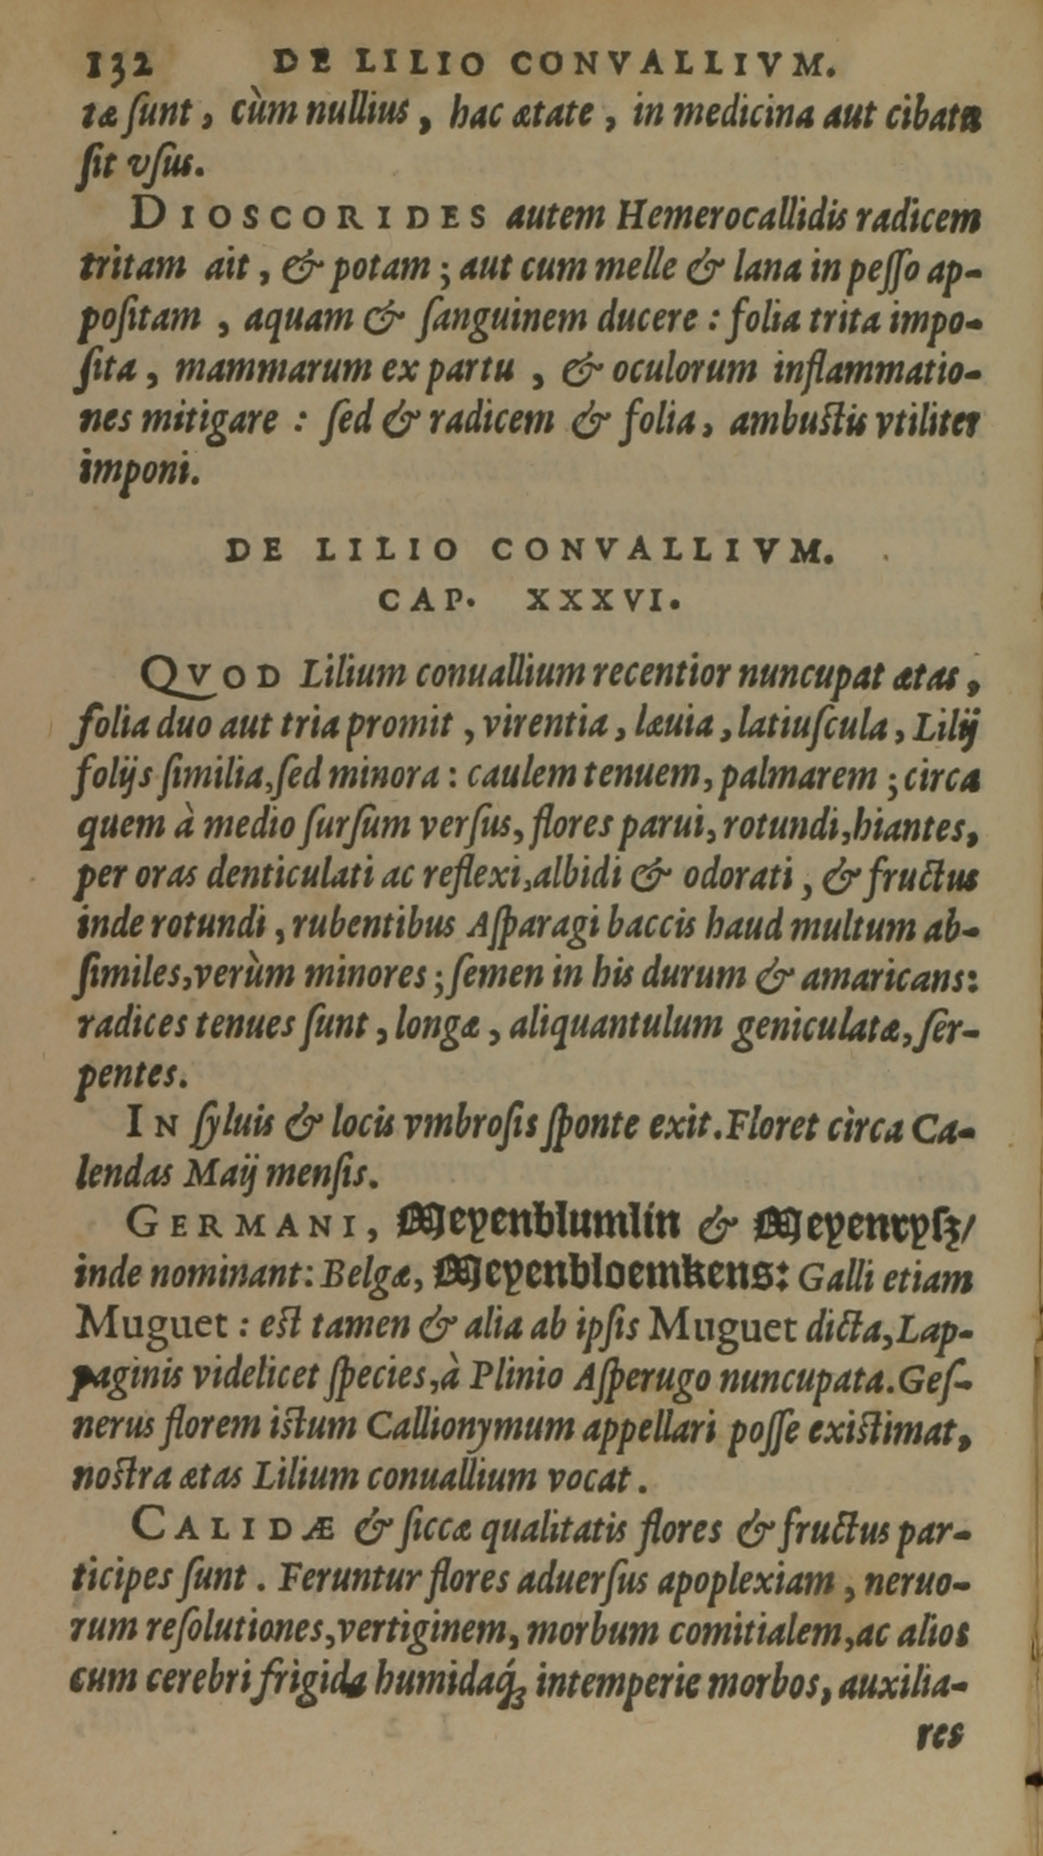 132 DE LILIO CONVALLIVM.
tæ ſunt, cùm nullius, hac ætate, in medicina aut cibatu
ſit vſus.
DIOSCORIDES autem Hemerocallidis radicem
tritam ait, & potam; aut cum melle & lana in peſſo ap-
poſitam, aquam & ſanguinem ducere: folia trita impo-
ſita, mammarum ex partu, & oculorum inflammatio-
nes mitigare: ſed & radicem & folia, ambuſtis vtiliter
imponi.
DE LILIO CONVALLIVM.
CAP. XXXVI.
QVOD Lilium conuallium recentior nuncupat ætas,
folia duo aut tria promit, virentia, læuia, latiuſcula, Lilij
folijs ſimilia, ſed minora: caulem tenuem, palmarem; circa
quem à medio ſurſum verſus, flores parui, rotundi, hiantes,
per oras denticulati ac reflexi, albidi & odorati, & fructus
inde rotundi, rubentibus Aſparagi baccis haud multum ab-
ſimiles, verùm minores; ſemen in his durum & amaricans:
radices tenues ſunt, longæ, aliquantulum geniculatæ, ſer-
pentes.
IN ſyluis & locis vmbroſis ſponte exit. Floret cìrca Ca-
lendas Maij menſis.
GERMANI, Meyenblumlin & Meyenryſz/
inde nominant: Belgæ, Meyenbloemkens: Galli etiam
Muguet: eſt tamen & alia ab ipſis Muguet dicta, Lap-
paginis videlicet ſpecies, à Plinio Aſperugo nuncupata. Geſ-
nerus florem iſtum Callionymum appellari poſſe exiſtimat,
noſtra ætas Lilium conuallium vocat.
CALIDÆ & ſiccæ qualitatis flores & fructus par-
ticipes ſunt. Feruntur flores aduerſus apoplexiam, neruo-
rum reſolutiones, vertiginem, morbum comitialem, ac alios
cum cerebri frigida humidaq́; intemperie morbos, auxilia-
res